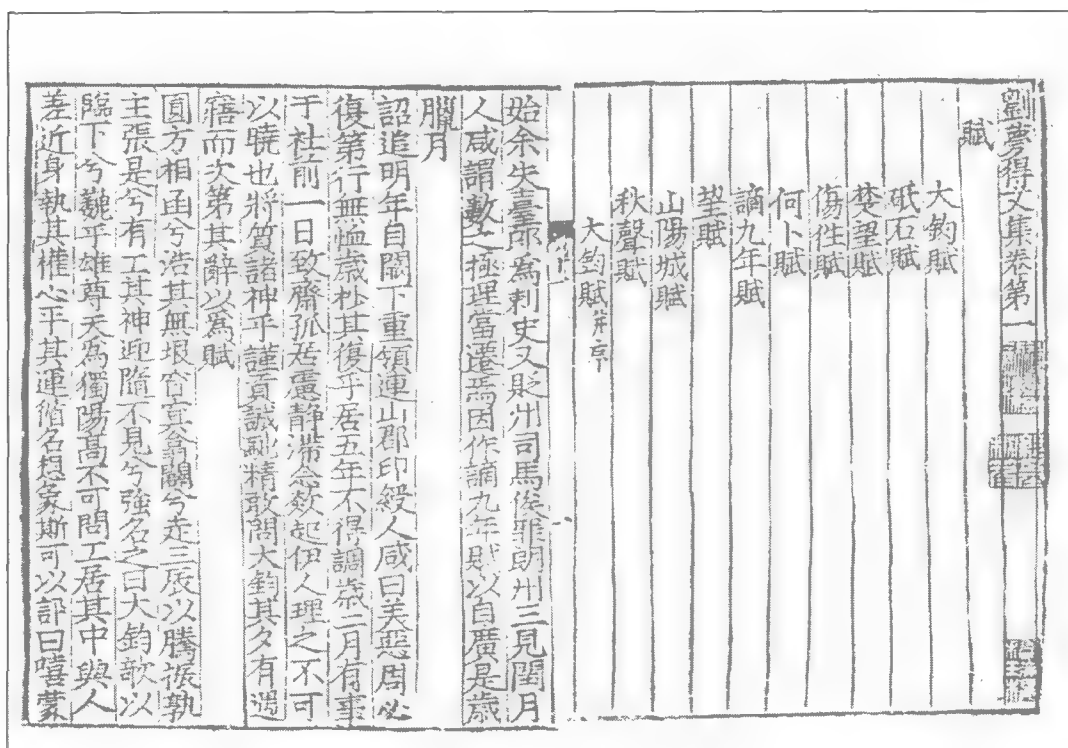 劉夢得文集卷第一
賦
大鈞賦
砥石賦
楚望賦
傷往賦
何卜賦
謫九年賦
望賦
山陽城賦
秋聲賦
大鈞賦并序
始余失臺郎爲刺史又貶州司馬俟罪朗州三見閏月
人咸謂數之極理當遷焉因作謫九年賦以自廣是歲
臘月
詔追明年自闕下重領連山郡印綬人咸曰美惡周必
復第行無恤歲杪其復乎居五年不得調歲二月有事
于社前一日致齋孤居慮靜滯念欻起伊人理之不可
以曉也將質諸神乎謹貢誠馳精敢問大鈞其夕有遇
寤而次第其辭以爲賦
圓方相函兮浩其無垠窅冥翕闢兮走三辰以騰振孰
主張是兮有工其神迎隨不見兮強名之曰大鈞歊以
臨下兮巍乎雄尊天爲獨陽高不可問工居其中與人
差近身執其權心平其運循名想象斯可以訊曰嘻蒙